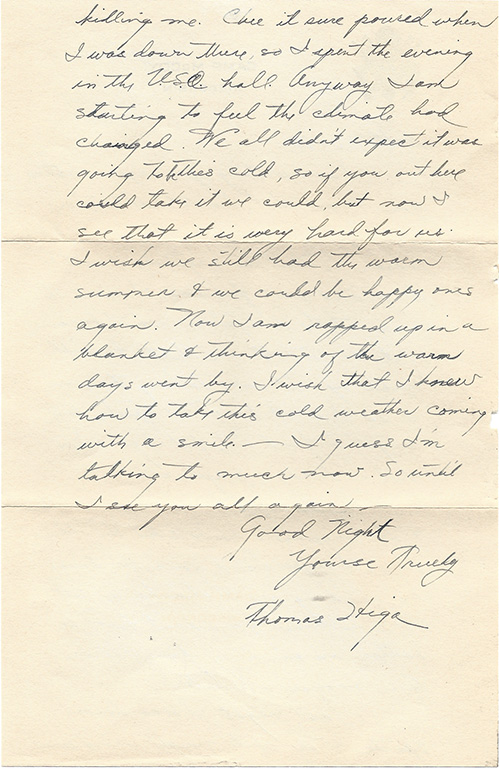 killing me. Chee it sure poured when
I was down there, so I spent the evening
in the U.S.O. hall. Anyway I am
starting to feel the climate had
changed. We all didn't expect it was
going to be this cold, so if you out here
could take it we could, but now I
see that it is very hard for us.
I wish we still had the warm
summer & we could be happy ones
again. Now I am rapped up in a
blanket & thinking of the warm
days went by. I wish that I knew
how to take this cold weather coming
with a smile — I guess I'm
talking to much now. So until
I see you all again —
Good Night
Yourse Truely
Thomas Higa